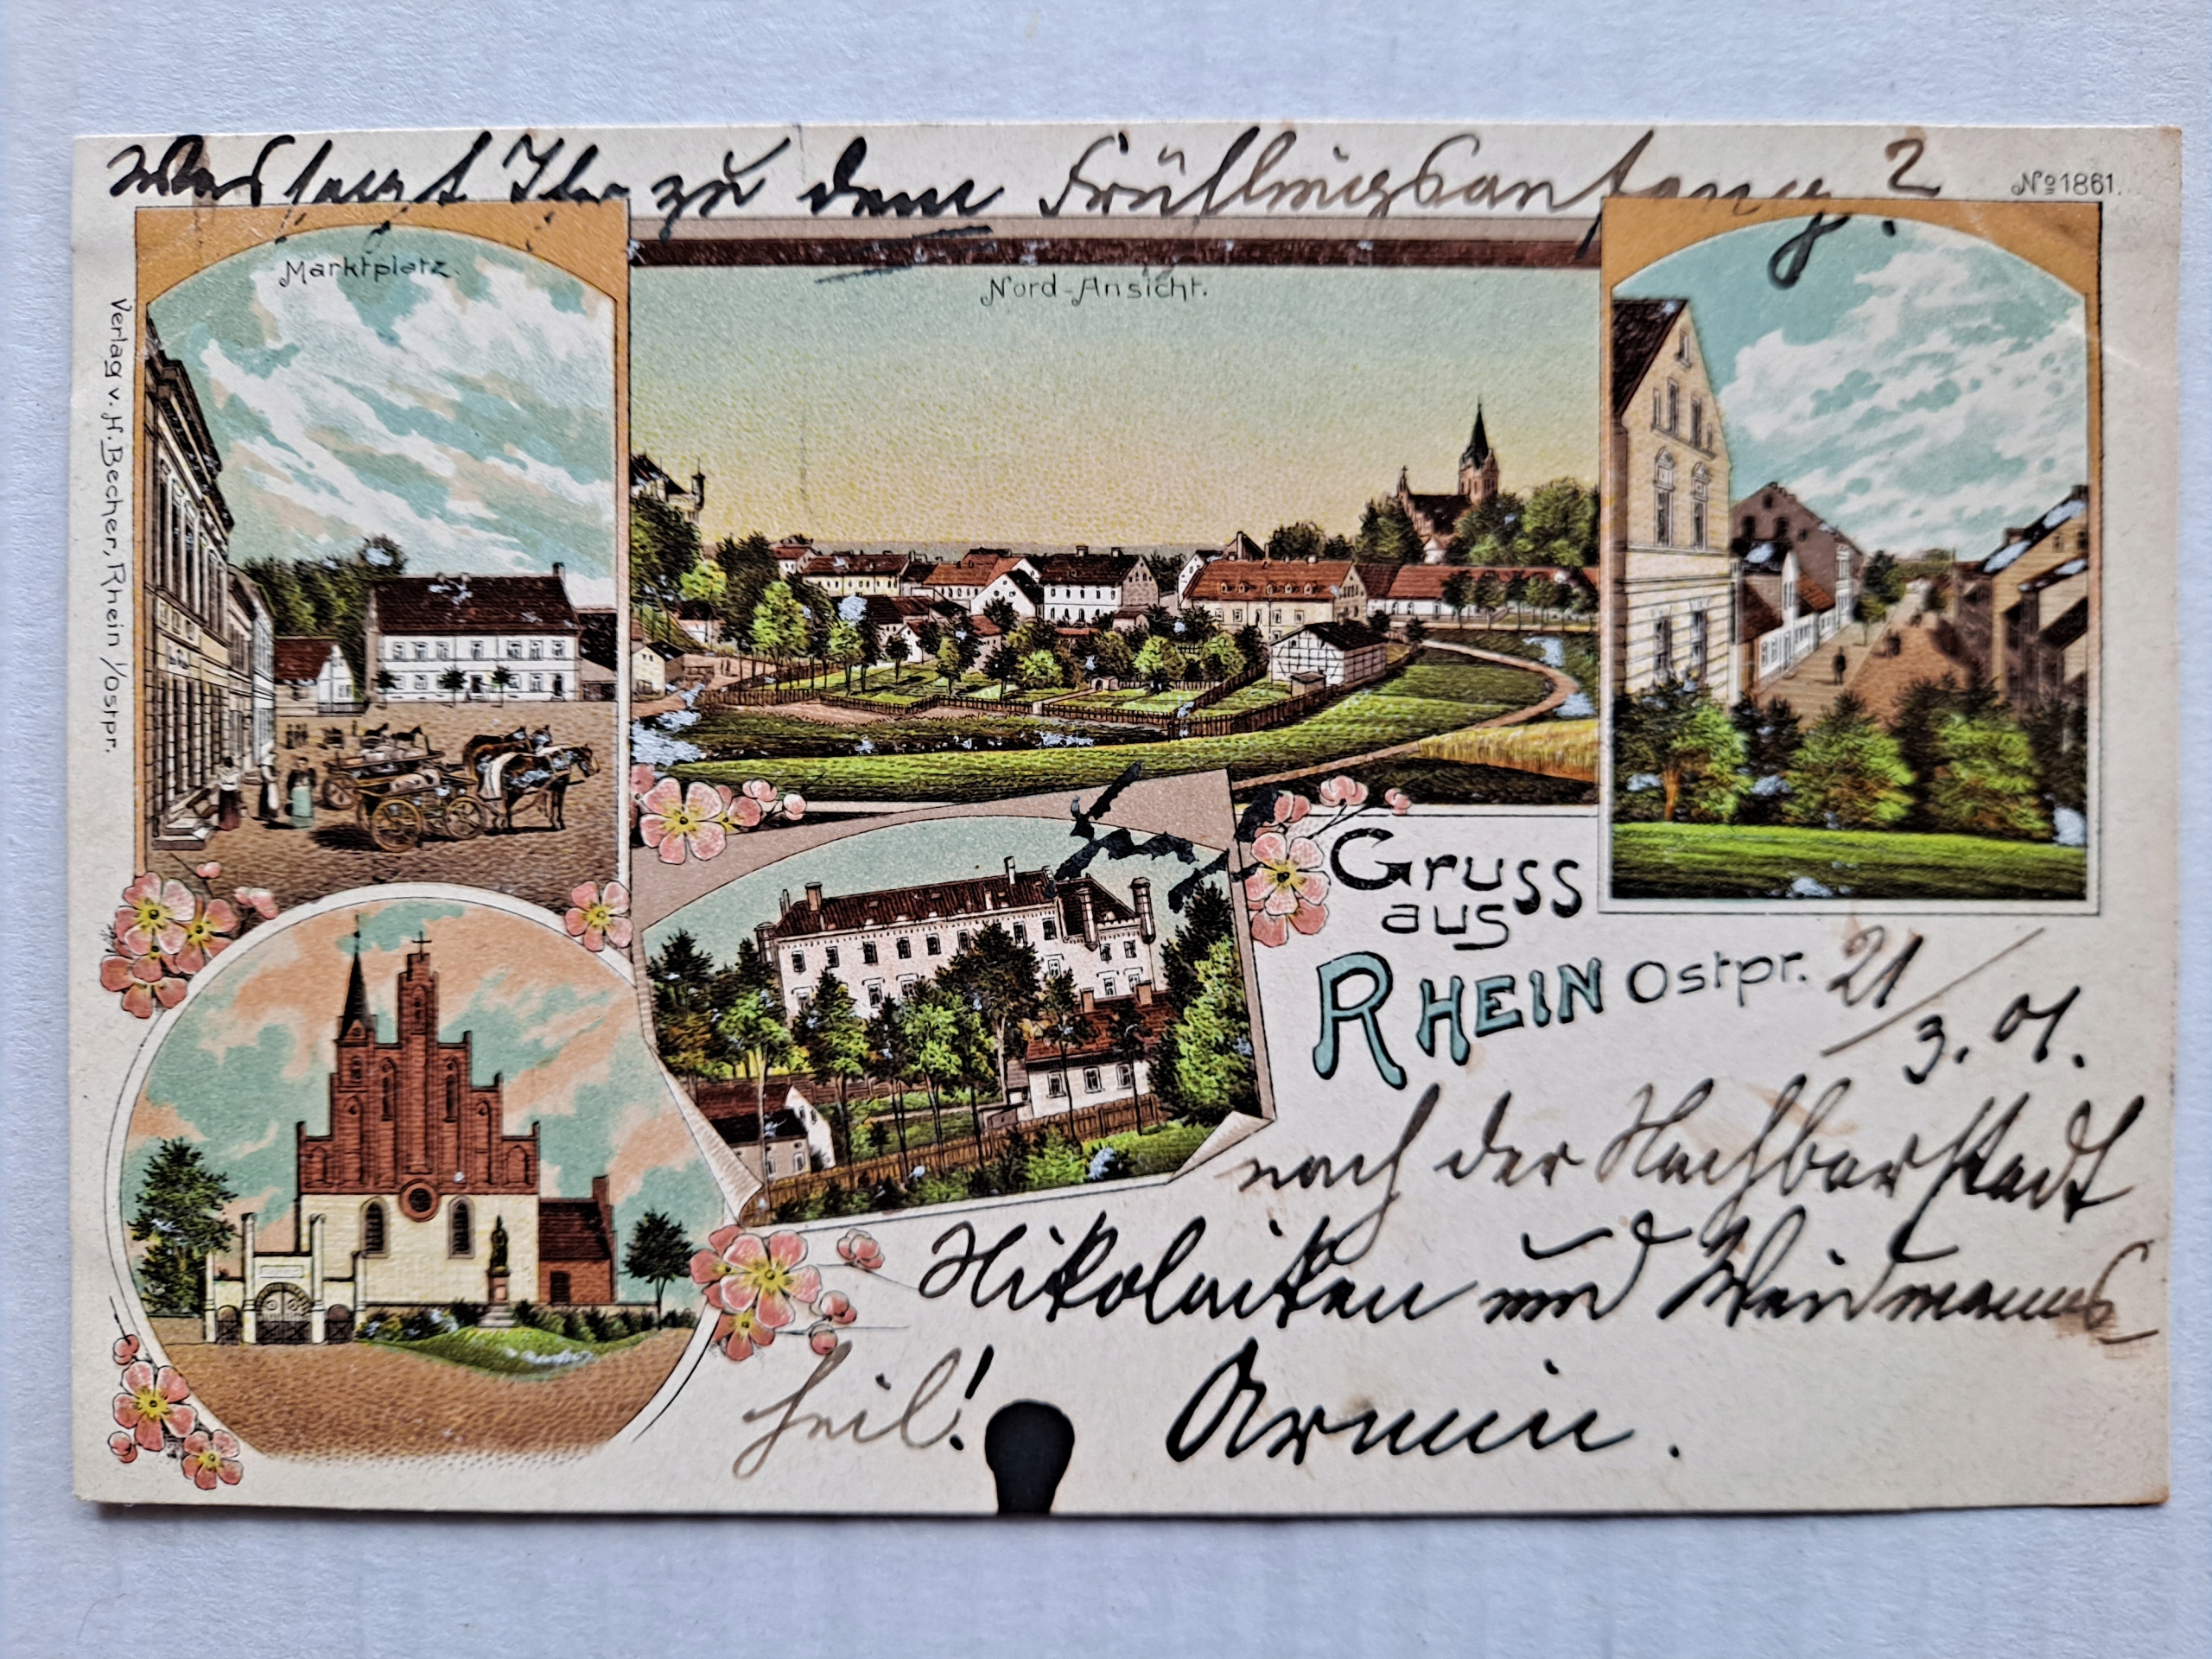 Was sagt Ihr zu dem Frühlingsanfang?
No 1861.
Marktplatz.
Nord-Ansicht.
Verlag v. H. Becher, Rhein i/Ostpr.
Gruss
aus
RHEIN Ostpr. 21/3. 01.
nach der Nachbarstadt
Nikolaiken und Weidmanns
heil! Armin.